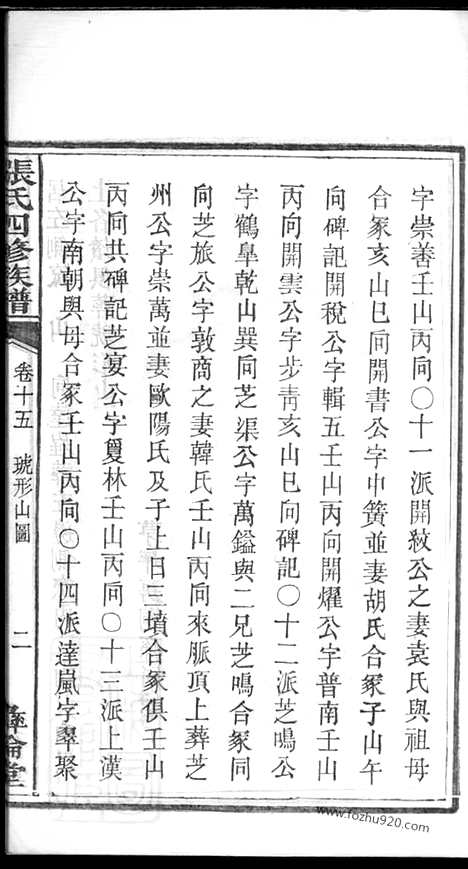 字崇善壬山丙向〇十一派開敍公之妻袁氏與祖母
合冢亥山巳向開書公字中簧並妻胡氏合冢子山午
向碑記開稅公字輯五壬山丙向開燿公字普南壬山
丙向開雲公字步青亥山巳向碑記〇十二派芝鳴公
字鶴臯乾山巽向芝渠公字萬鎰與二兄芝鳴合冢同
向芝旅公字敦商之妻韓氏壬山丙向來脈頂上葬芝
州公字崇萬並妻歐陽氏及子上日三墳合冢俱壬山
丙向共碑記芝宴公字夏林壬山丙向〇十三派上漢
公字南朝與母合冢壬山丙向〇十四派達嵐字翠聚
張氏四修族譜
卷十五 琥形山圖
二
彝倫堂
www.fozhu920.com